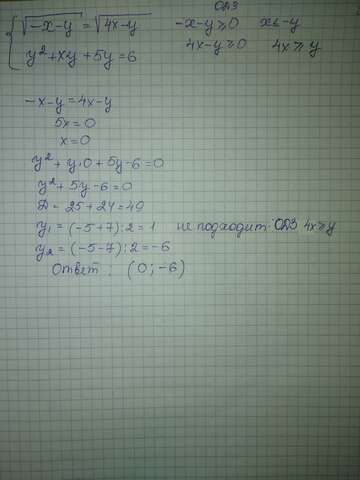 ОДЗ
{ √(-x-y) = √(4x-y)    -x-y≥0    x≤-y
y²+xy+5y=6    4x-y≥0    4x≥y
-x-y=4x-y
5x=0
x=0
y²+y·0+5y-6=0
y²+5y-6=0
D=25+24=49
y₁=(-5+7):2=1    не подходит ОДЗ 4x≥y
y₂=(-5-7):2=-6
Ответ: (0;-6)